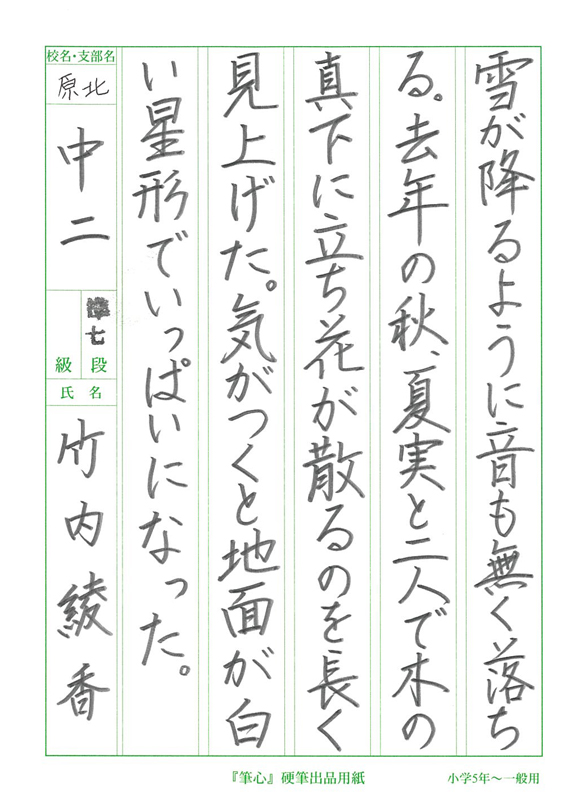 雪が降るように音も無く落ち
る。去年の秋、夏実と二人で木の
真下に立ち花が散るのを長く
見上げた。気がつくと地面が白
い星形でいっぱいになった。
校名・支部名
原北
中二
準七
段
級
氏名
竹内綾香
『筆心』硬筆出品用紙
小学5年～一般用